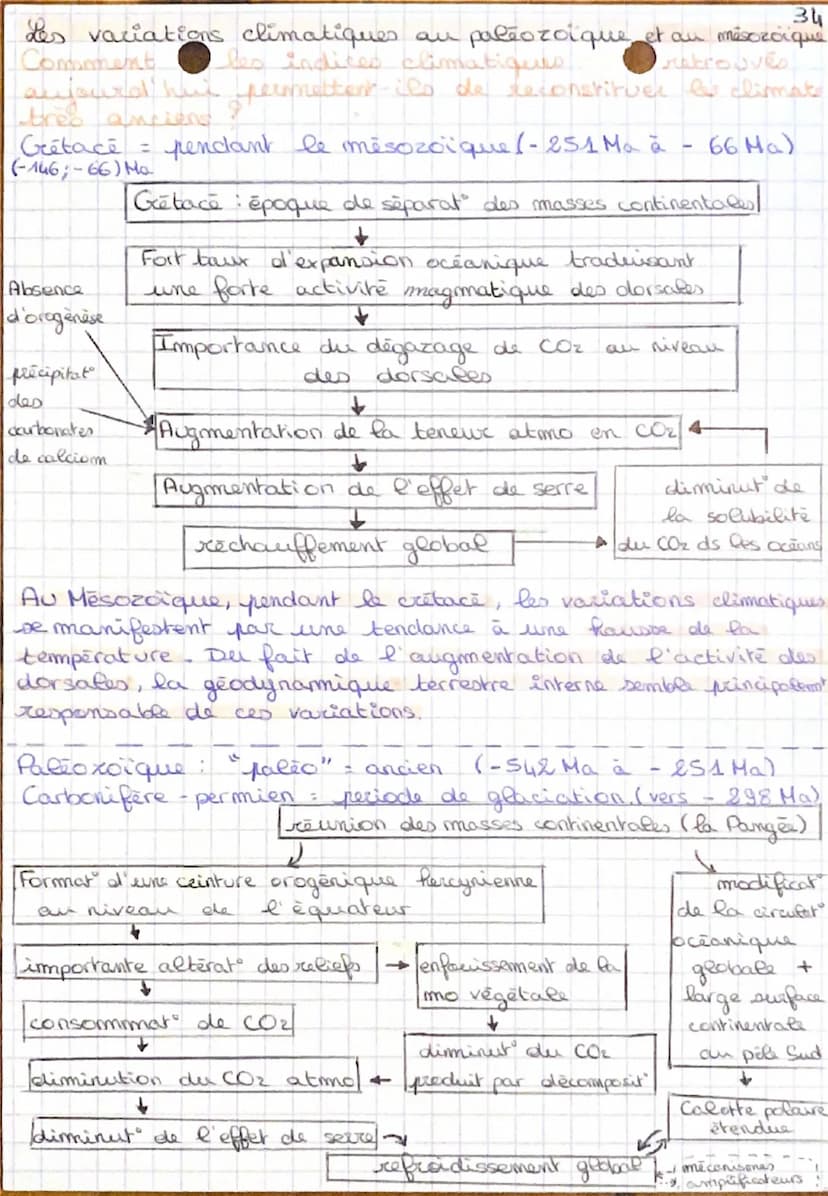 34
Les variations climatiques au paléozoïque et au mésozoïque
Comment les indices climatiques retrouvés
aujourd'hui permettent-ils de reconstituer les climats
très anciens ?
Crétacé = pendant le mésozoïque (- 251 Ma à - 66 Ma)
(-146 ; -66) Ma
Crétacé : époque de séparat° des masses continentales
Fort taux d'expansion océanique traduisant
une forte activité magmatique des dorsales
Absence
d'orogénèse
Importance du dégazage de CO2 au niveau
des dorsales
précipitat°
des
carbonates
de calcium
Augmentation de la teneur atmo en CO2
Augmentation de l'effet de serre
réchauffement global
diminut° de
la solubilité
du CO2 ds les océans
Au Mésozoïque, pendant le crétacé, les variations climatiques
se manifestent par une tendance à une hausse de la
température. Du fait de l'augmentation de l'activité des
dorsales, la géodynamique terrestre interne semble principalemt
responsable de ces variations.
Paléozoïque : "paléo" = ancien (-542 Ma à - 251 Ma)
Carbonifère - permien = période de glaciation. (vers - 298 Ma)
réunion des masses continentales (la Pangée)
Format° d'une ceinture orogénique hercynienne
au niveau de l'équateur
importante altérat° des reliefs
enfouissement de la
mo végétale
consommat° de CO2
diminut° du CO2
produit par décomposit°
diminution du CO2 atmo
diminut° de l'effet de serre
modificat°
de la circulat°
océanique
globale +
large surface
continentale
au pôle Sud
Calotte polaire
étendue
refroidissement global
mécanismes
amplificateurs